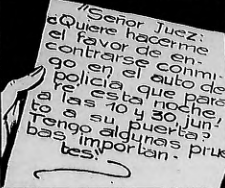 "Señor Juez:
¿Quiere hacerme
el favor de en-
contrarse conmi-
go en el auto de
policía que para-
re esta noche,
a las 10 y 30 jun-
to a su puerta?
Tengo algunas prue
bas importan-
tes."